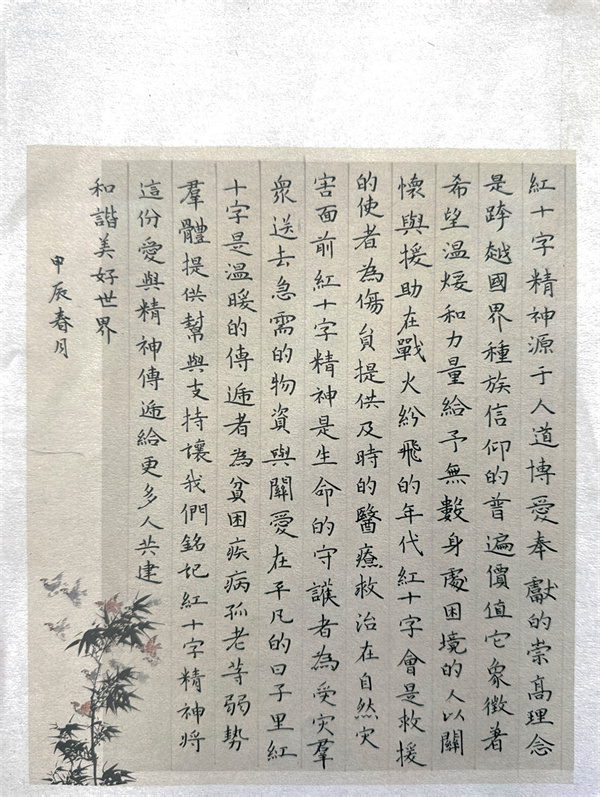 紅十字精神源于人道博愛奉獻的崇高理念
是跨越國界種族信仰的普遍價值它象徵著
希望温煖和力量給予無數身處困境的人以關
懷與援助在戰火紛飛的年代紅十字會是救援
的使者為傷員提供及時的醫療救治在自然灾
害面前紅十字精神是生命的守護者為受灾羣
衆送去急需的物資與關愛在平凡的日子里紅
十字是温暖的傳遞者為貧困疾病孤老等弱勢
羣體提供幫與支持壤我們銘記紅十字精神將
這份愛與精神傳遞給更多人共建
和諧美好世界
甲辰春月